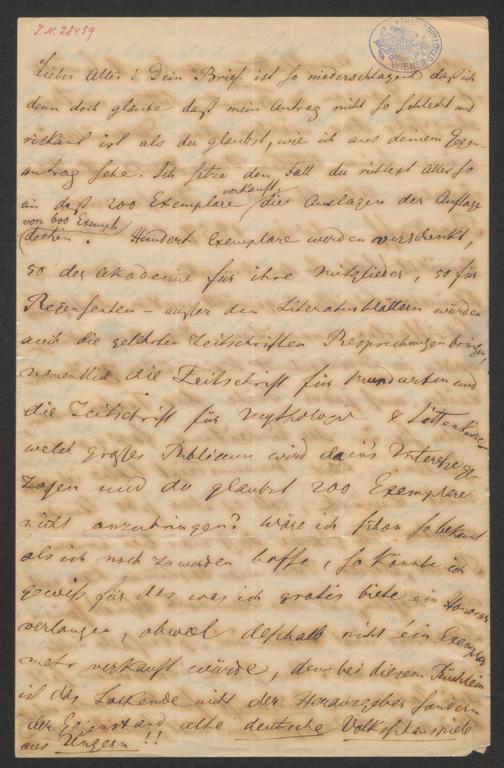 I.N. 28459
Lieber Alter! Dein Brief ist so niederschlagend daß ich
denn doch glaube daß mein Antrag nicht so schlecht und
riskant ist als du glaubst, wie ich aus deinem Gegen-
antrag sehe. Ich setze den Fall du richtest alles so
ein daß 200 Exemplare verkauft, die Auslagen der Auflage
von 600 Exempl
decken. Hundert Exemplare werden verschenkt,
50 der Akademie für ihre Mitglieder, 50 für
Rezensenten – außer den Literaturblättern würden
auch die gelehrten Zeitschriften Besprechungen bringen,
namentlich die Zeitschrift für Mundarten und
die Zeitschrift für Mythologie & Sittenkunde –
welch großes Publicum wird da in's Interesse ge-
zogen und du glaubst 200 Exemplare
nicht anzubringen? Wäre ich schon so bekannt
als ich noch zu werden hoffe, so könnte ich
gewiß für das was ich gratis biete ein Honorar
verlangen, obwol deßhalb nicht ein Exemplar
mehr verkauft würde, denn bei diesem Büchlein
ist das Lockende nicht der Herausgeber sondern
der Gegenstand alte deutsche Volksschauspiele
aus Ungern!!